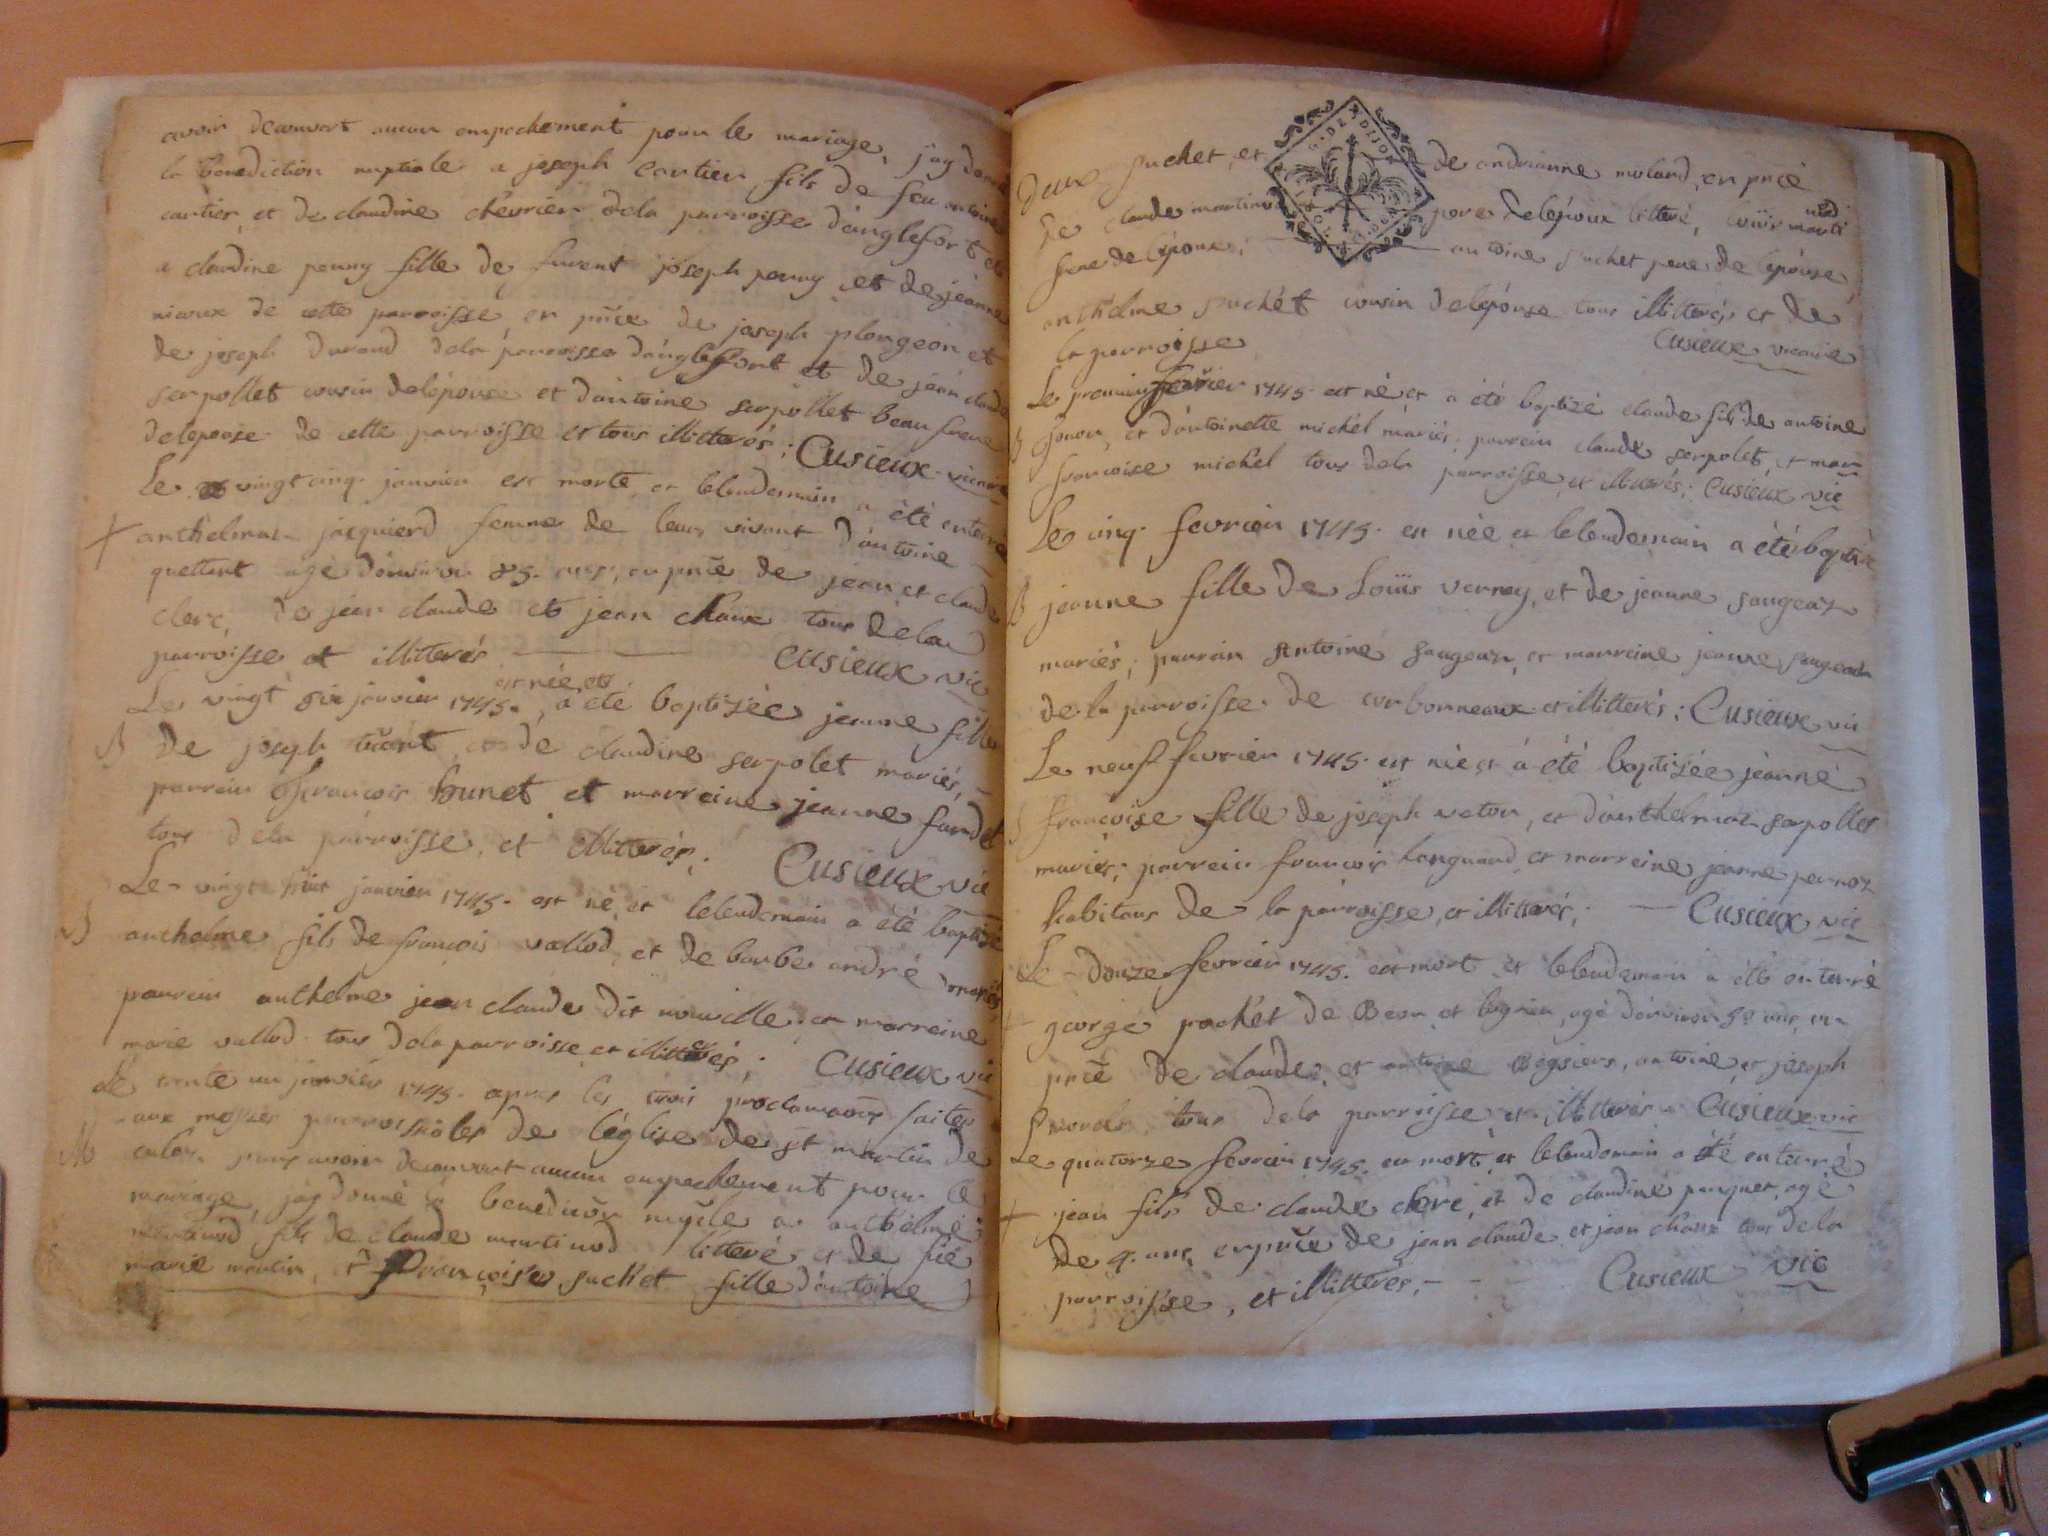 avoir decouvert aucun empechement pour le mariage, j'ay donné
la benediction nuptiale a joseph cartier fils de feu antoine
cartier, et de claudine chevrier dela parroisse d'anglefort et
a claudine penny fille de furent joseph penny et de jeanne
de cette parroisse, en pnce de joseph plongeon et
de joseph durand dela parroisse d'anglefort et de jean claude
serpollet cousin de lépouse et d'antoine serpollet beau frere
de lepouse de cette parroisse et tous illitterés; Cusieux vicaire
Le vingt cinq janvier est morte, et le lendemain a été enterré
anthelmaz jacquierd femme de leur vivant d'antoine
quettant agé d'environ 85. ans, en pnce de jean et claude
clerc, de jean claude et jean chane tous dela
parroisse et illiterés Cusieux vic
Le vingt six janvier 1745. est née, et a été baptizée jeanne fille
B de joseph et de claudine serpolet mariés,
parrein françois hunet et marreine jeanne
tous dela parroisse, et illitterés; Cusieux vic
Le vingt huit janvier 1745. est né, et lelendemain a été baptizé
B anthelme fils de françois vallod, et de barbe andré mariés
parrein anthelme jean claude dit nouvelle, et marreine
marie vallod tous dela parroisse et illitterés; Cusieux vic
Le trente un janvier 1745. apres les trois proclamaons faites
aux messes parroissiales de l'église de st martin de
M culoz sans avoir decouvert aucun empechement pour le
mariage, j'ay donné la benediction nuptle a anthelme
martinod fils de claude martinod litteré et de fie
marie martin, et françoise suchet fille d'antoine
suchet, et de andrianne molard, en pnce
de claude martinod pere de lépoux litteré, louis martinod
frere de lépoux; antoine suchet pere de lépouse,
anthelme suchet cousin de lépouse tous illitterés et de
la parroisse Cusieux vicaire
Le premier fevrier 1745. est né et a été baptizé claude fils de antoine
B et d'antoinette michel mariés; parrein claude serpolet, et marr
françoise michel tous dela parroisse, et illiterés; Cusieux vic
Le cinq fevrier 1745. est née et lelendemain a été baptizé
B jeanne fille de Loüis verney, et de jeanne saugeaz
mariés; parrain Antoine saugeaz, et marreine jeanne saugeaz
de la parroisse de corbonneaux et illitterés; Cusieux vic
Le neuf fevrier 1745. est née et a été baptizée jeanne
B françoise fille de joseph veton, et d'anthelmaz serpollet
mariés; parrein françois hanguand et marreine jeanne pernoz
habitans de la parroisse, et illitterés; Cusieux vic
Le douze fevrier 1745. est mort et lelendemain a été enterré
george pochet de Beon et lugrieu, agé d'environ 50 ans, en
pnce de claude, et antoine Begsiers, antoine, et joseph
tous dela parroisse, et illitterés Cusieux vic
Le quatorze fevrier 1745. est mort, et lelendemain a été enterré
jean fils de claude clerc, et de claudine paquet, agé
de 4. ans, en pnce de jean claude et jean chane tous dela
parroisse, et illitterés, Cusieux vic